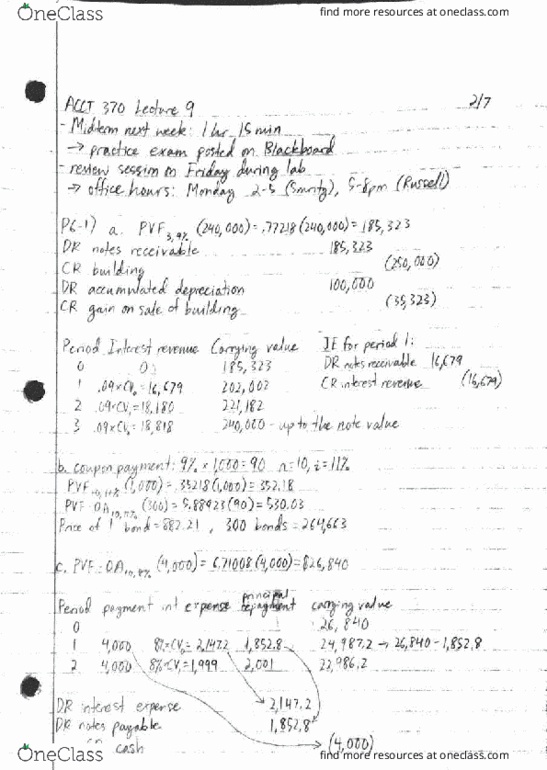 OneClass
find more resources at oneclass.com
ACCT 370 Lecture 9 2/7
- Midterm next week: 1 hr 15 min
→ practice exam posted on Blackboard
- review session on Friday during lab
→ office hours: Monday 2-5 (Smrity), 5-8pm (Russell)
P6-1) a. PVF3,9% (240,000) = .77218 (240,000) = 185,323
DR notes receivable 185,323
CR building (250,000)
DR accumulated depreciation 100,000
CR gain on sale of building (35,323)
Period Interest revenue Carrying value IE for period 1:
0 0 185,323 DR notes receivable 16,679
1 .09×CV0=16,679 202,002 CR interest revenue (16,679)
2 .09×CV1=18,180 221,182
3 .09×CV2=18,818 240,000 - up to the note value
b. coupon payment: 9% × 1,000=90 n=10, i=11%
PVF10,11% (1,000)=.35218(1,000)=352.18
PVF-OA10,11% (300)=5.88923(90)=530.03
Price of 1 bond=882.21, 300 bonds=264,663
c. PVF-OA10,8% (4,000)=6.71008(4,000)=$26,840
Period payment int expense principal repayment carrying value
0 26,840
1 4,000 8%×CV0=2,147.2 1,852.8 24,987.2 → 26,840-1,852.8
2 4,000 8%×CV1=1,999 2,001 22,986.2
DR interest expense 2,147.2
DR notes payable 1,852.8
cash (4,000)
OneClass
find more resources at oneclass.com